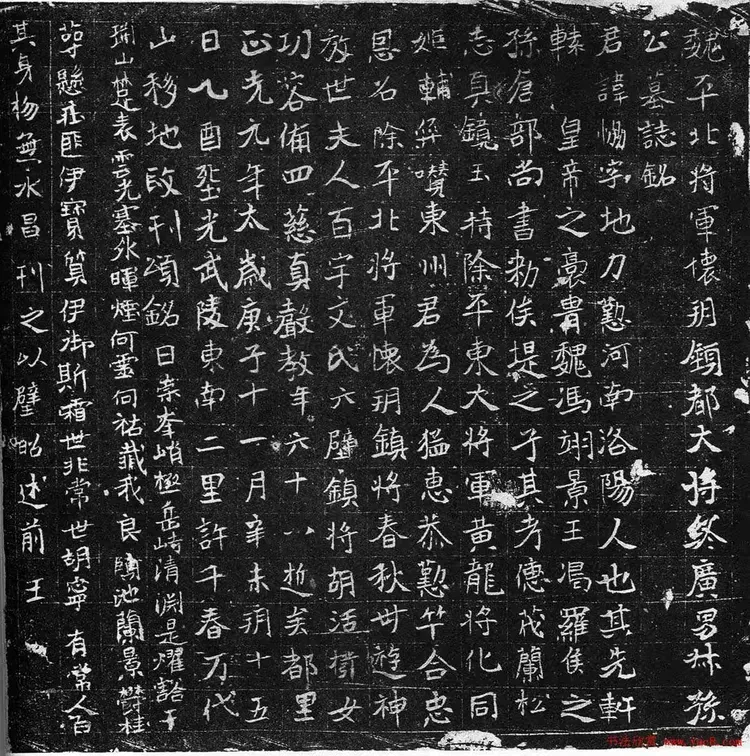 魏平北將軍懷玥鎮都大將終廣男叔孫
公墓誌銘
君諱㑥字地力懃河南洛陽人也其先軒
轅皇帝之裔曹魏馮翊景王渴羅侯之
孫倉部尚書勑俟堤之子其考德茂蘭松
志真鏡玉持除平東大將軍黃龍將化同
姬輔筭嚽東州君為人猛惠恭懃竿合忠
恩名除平北將軍懷玥鎮將春秋毌遊神
放世夫人百宇文氏六壁鎮將胡活撥女
功容俻四慈真聲教年六十八逝矣都里
正光元年太歲庚子十一月辛未玥十五
日乀酉塟光武陵東南二里許千春万代
山移地改刊頌銘曰崇峯峭極岳峙清渊是燿豁于
瑞山楚表雲光塞外暉煙何靈何祜蕺我良 陶池蘭景欝桂
夢懸莊匪伊寶質伊御斯霜世非常世胡寧有常人百
其身杨無永昌刊之以壁昭述前王